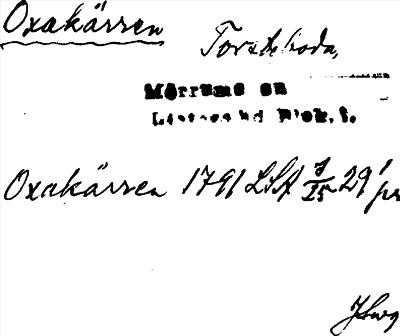 Oxakärren
Torsteboda,
Mörrums sn
Listers hd Blek. l.
Oxakärren 1791 LSA 29